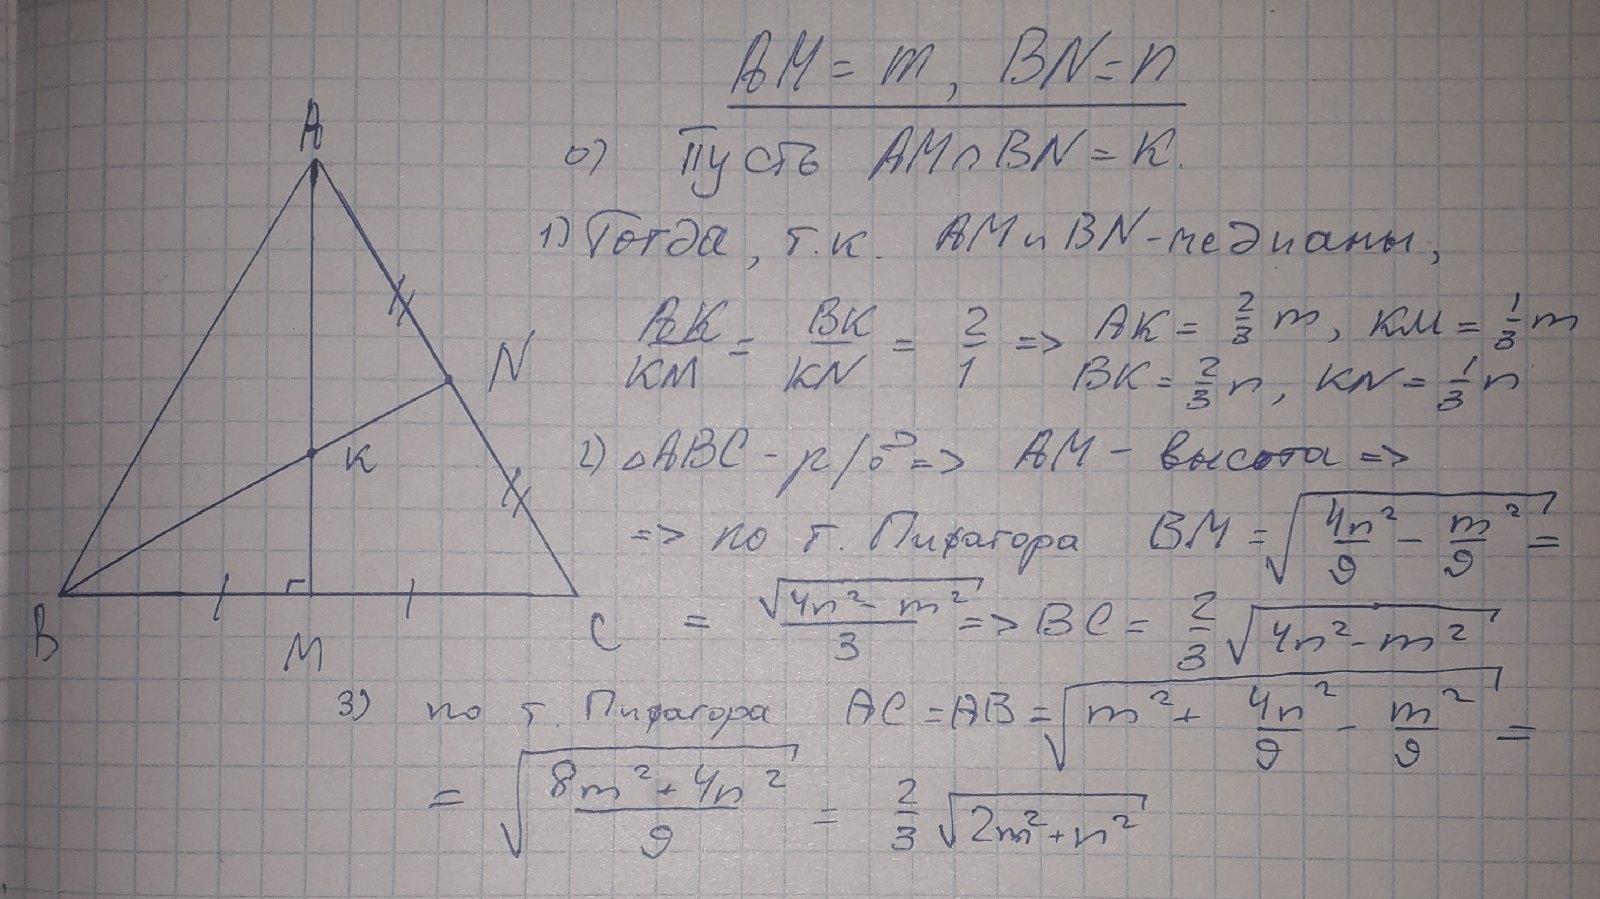 AM = m, BN = n
0) Пусть AM∩BN = K.
A
1) Тогда, т.к. AM и BN - медианы,
AK/KM = BK/KN = 2/1 => AK = 2/3 m, KM = 1/3 m
BK = 2/3 n, KN = 1/3 n
N
K
2) △ABC - р/б => AM - высота =>
=> по т. Пифагора BM = √(4n²/9 - m²/9) =
= √(4n² - m²)/3 => BC = 2/3 √(4n² - m²)
B
M
C
3) по т. Пифагора AC = AB = √(m² + 4n²/9 - m²/9) =
= √((8m² + 4n²)/9) = 2/3 √(2m² + n²)